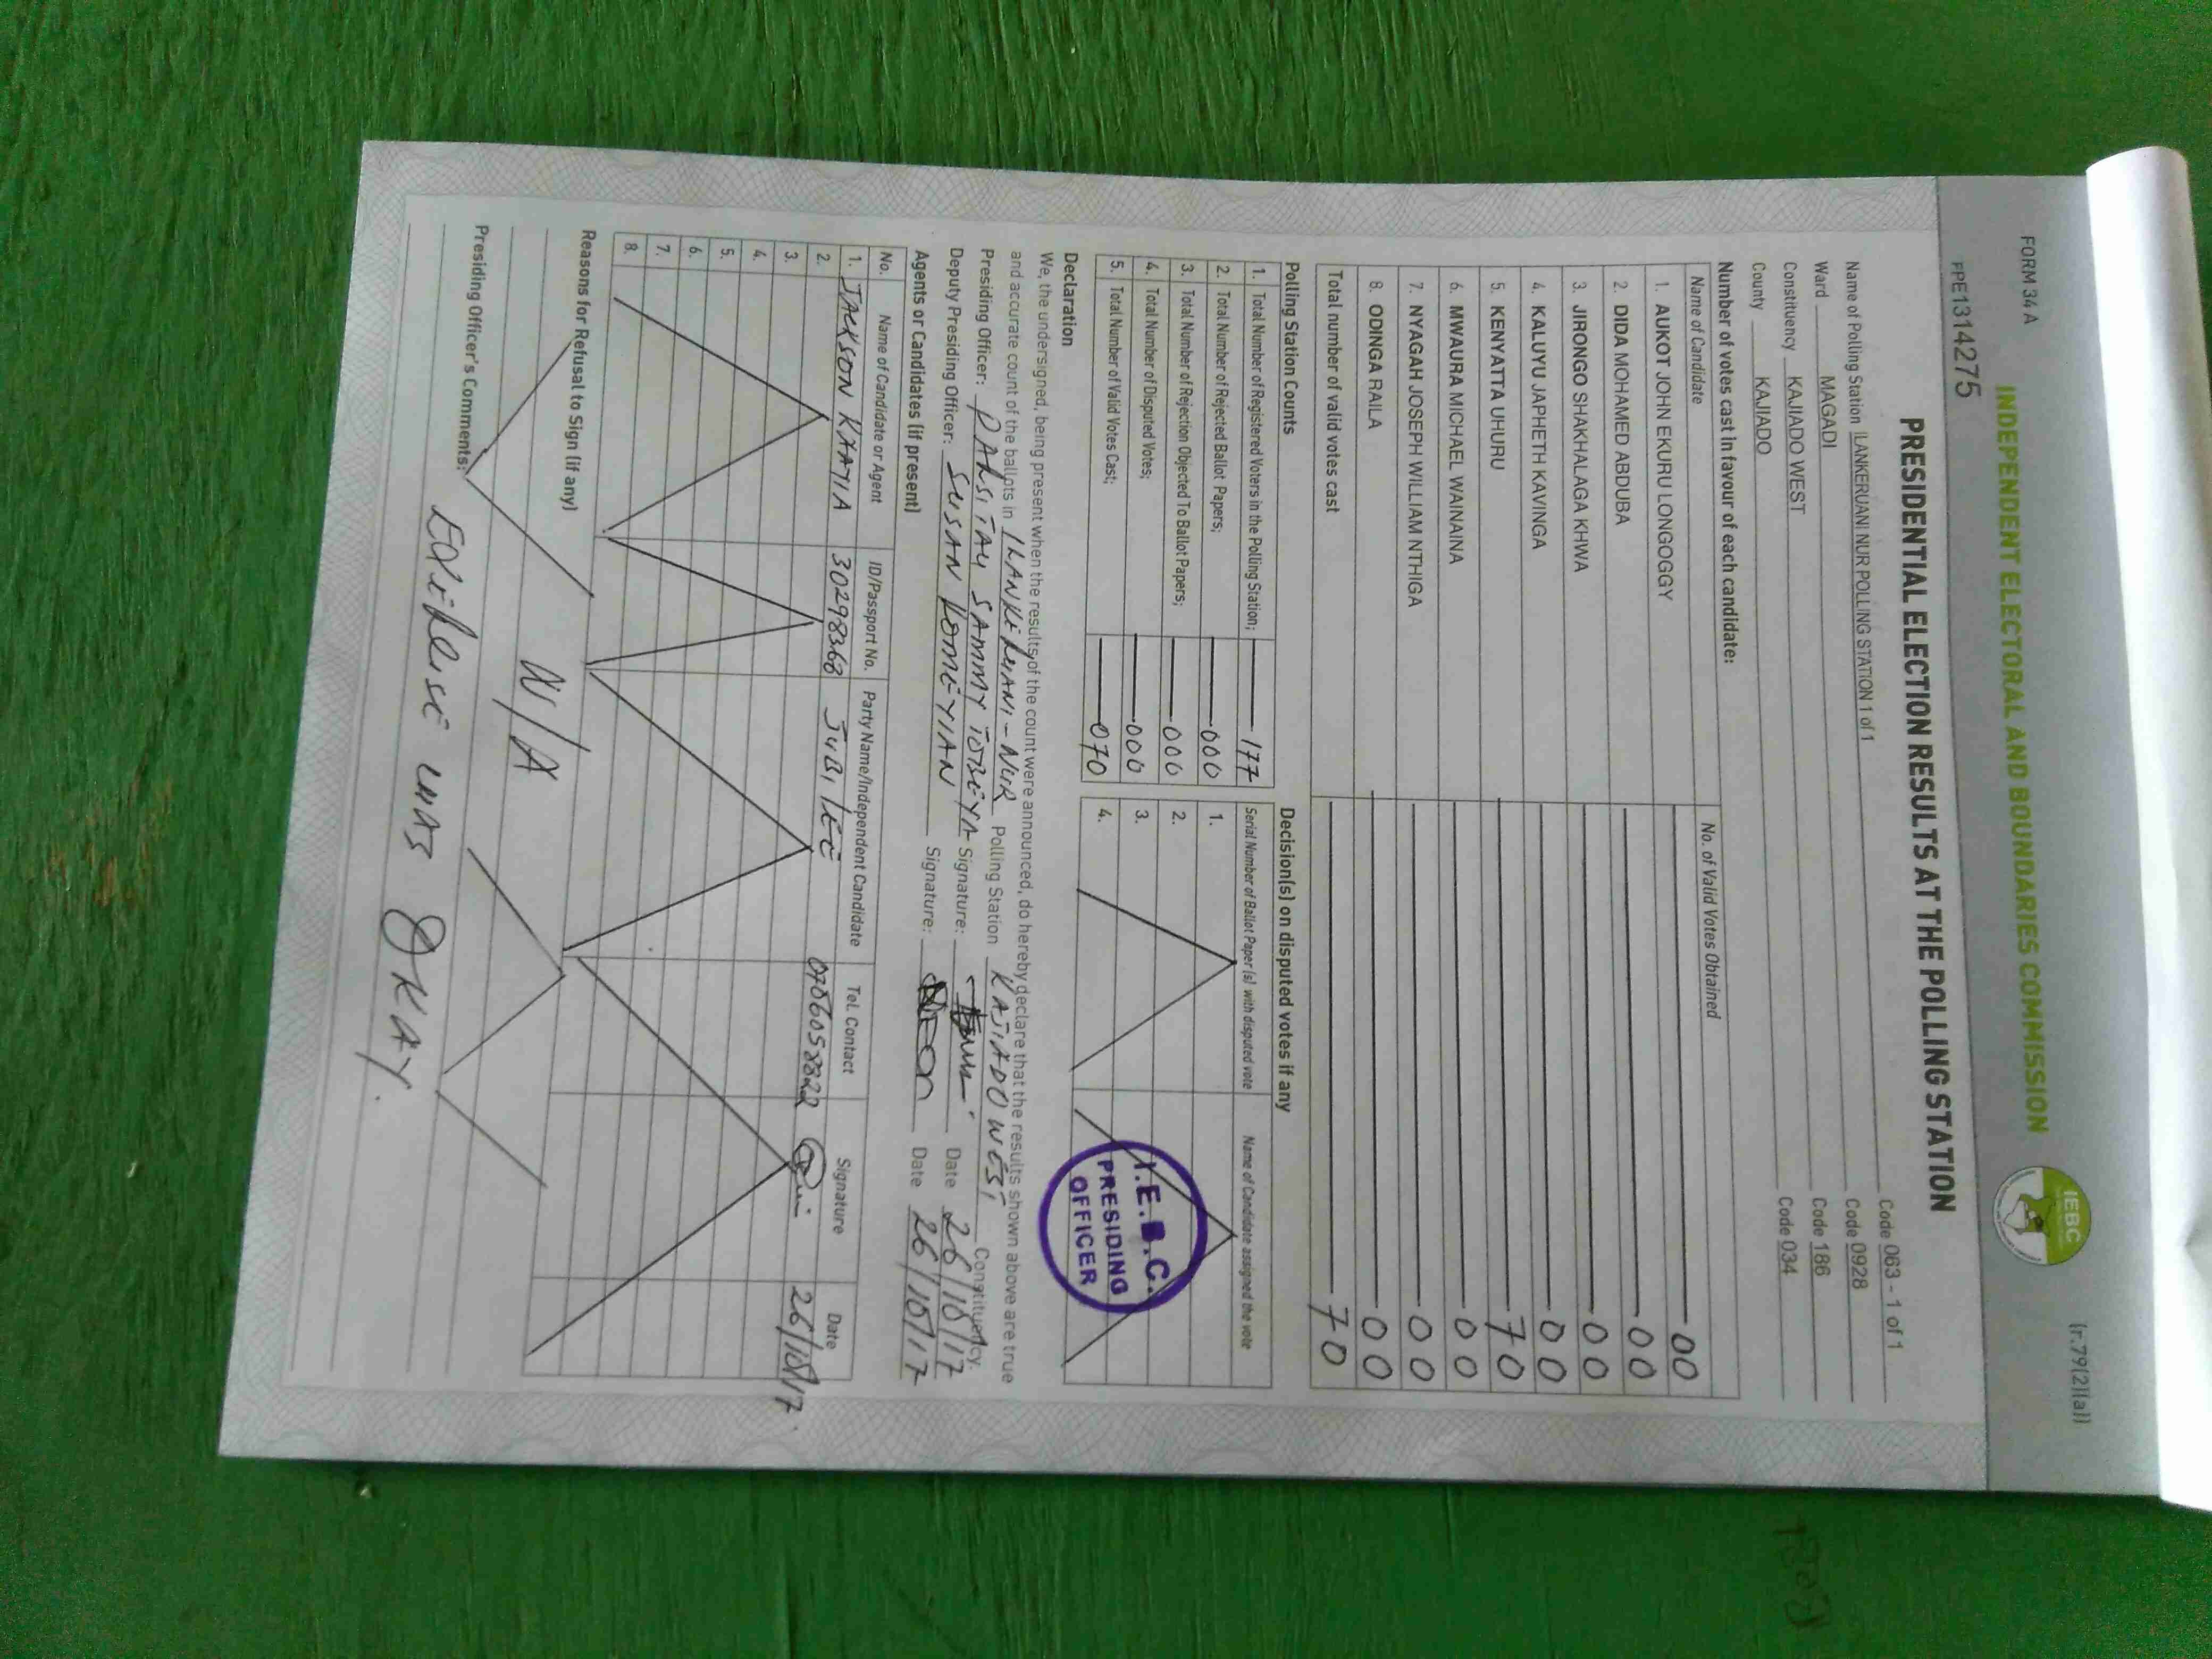 FORM 34 A
(r.79(2)(a))
INDEPENDENT ELECTORAL AND BOUNDARIES COMMISSION
IEBC
FPE1314275
PRESIDENTIAL ELECTION RESULTS AT THE POLLING STATION
Name of Polling Station ILANKERUANI NUR POLLING STATION 1 of 1 Code 063 - 1 of 1
Ward MAGADI Code 0928
Constituency KAJIADO WEST Code 186
County KAJIADO Code 034
Number of votes cast in favour of each candidate:
Name of Candidate No. of Valid Votes Obtained
1. AUKOT JOHN EKURU LONGOGGY 00
2. DIDA MOHAMED ABDUBA 00
3. JIRONGO SHAKHALAGA KHWA 00
4. KALUYU JAPHETH KAVINGA 00
5. KENYATTA UHURU 70
6. MWAURA MICHAEL WAINAINA 00
7. NYAGAH JOSEPH WILLIAM NTHIGA 00
8. ODINGA RAILA 00
Total number of valid votes cast 70
Polling Station Counts
1. Total Number of Registered Voters in the Polling Station; 177
2. Total Number of Rejected Ballot Papers; 000
3. Total Number of Rejection Objected To Ballot Papers; 000
4. Total Number of Disputed Votes; 000
5. Total Number of Valid Votes Cast; 070
Decision(s) on disputed votes if any
Serial Number of Ballot Paper (s) with disputed vote Name of Candidate assigned the vote
1.
2.
3.
4.
I.E.B.C.
PRESIDING
OFFICER
Declaration
We, the undersigned, being present when the results of the count were announced, do hereby declare that the results shown above are true
and accurate count of the ballots in ILANKERUANI-NUR Polling Station KAJIADO WEST Constituency.
Presiding Officer: SAMMY Signature: Date 26/10/17
Deputy Presiding Officer: SUSAN KOMEYIAN Signature: Date 26/10/17
Agents or Candidates (if present)
No. Name of Candidate or Agent ID/Passport No. Party Name/Independent Candidate Tel. Contact Signature Date
1. JACKSON KHATIA 30298368 JUBILEE 0706058822 26/10/17.
2.
3.
4.
5.
6.
7.
8.
Reasons for Refusal to Sign (if any)
N/A
Presiding Officer's Comments:
EXERCISE WAS OKAY.